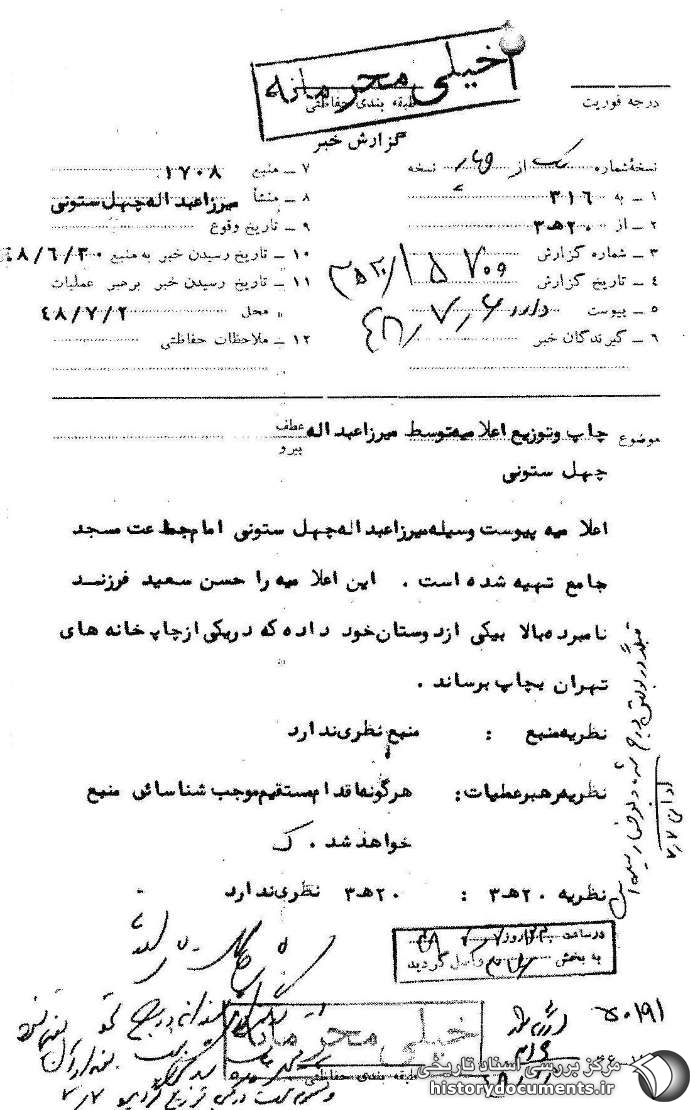 خیلی محرمانه
طبقه بندی حفاظتی
درجه فوریت
گزارش خبر
نسخه شماره یک از چهار نسخه
۷ ـ منبع ۱۷۰۸
۱ ـ به ۳۱۶
۸ ـ منشأ میرزاعبداله چهل ستونی
۲ ـ از ۲۰هـ۳
۹ ـ تاریخ وقوع
۳ ـ شماره گزارش ۱۵۷۰۹
۱۰ ـ تاریخ رسیدن خبر به منبع ۴۸/۶/۳۰
۴ ـ تاریخ گزارش
۱۱ ـ تاریخ رسیدن خبر برهبر عملیات
۵ ـ پیوست دارد
محل ۴۸/۷/۲
۶ ـ گیرندگان خبر
۱۲ ـ ملاحظات حفاظتی
۴۸/۷/۶
موضوع چاپ وتوزیع اعلامیه توسط میرزاعبداله عطف
پیرو
چهل ستونی
اعلامیه پیوست وسیله میرزاعبداله چهل ستونی امام جماعت مسجد
جامع تهیه شده است . این اعلامیه را حسن سعید فرزند
نامبرده بالا بیکی ازدوستان خود داده که دریکی ازچاپ خانه های
تهران بچاپ برساند .
نظریه منبع : منبع نظری ندارد
نظریه رهبرعملیات : هرگونه اقدام مستقیم موجب شناسائی منبع
خواهد شد .
نظریه ۲۰هـ۳ : ۲۰هـ۳ نظری ندارد
درساعت روز
به بخش واصل گردید
خیلی محرمانه
طبقه بندی حفاظتی
مرکز بررسی اسناد تاریخی
historydocuments.ir